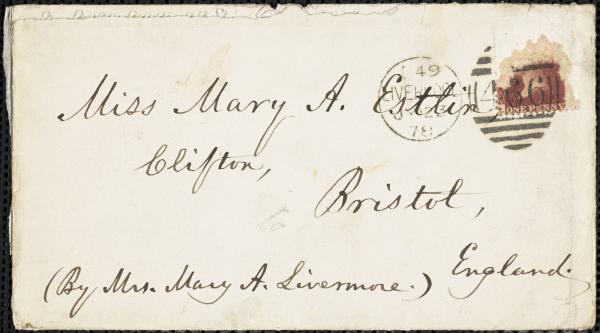 49
LIVERPOOL
78
466
Miss Mary A. Estlin
Clifton,
Bristol,
England.
(By Mrs. Mary A. Livermore.)